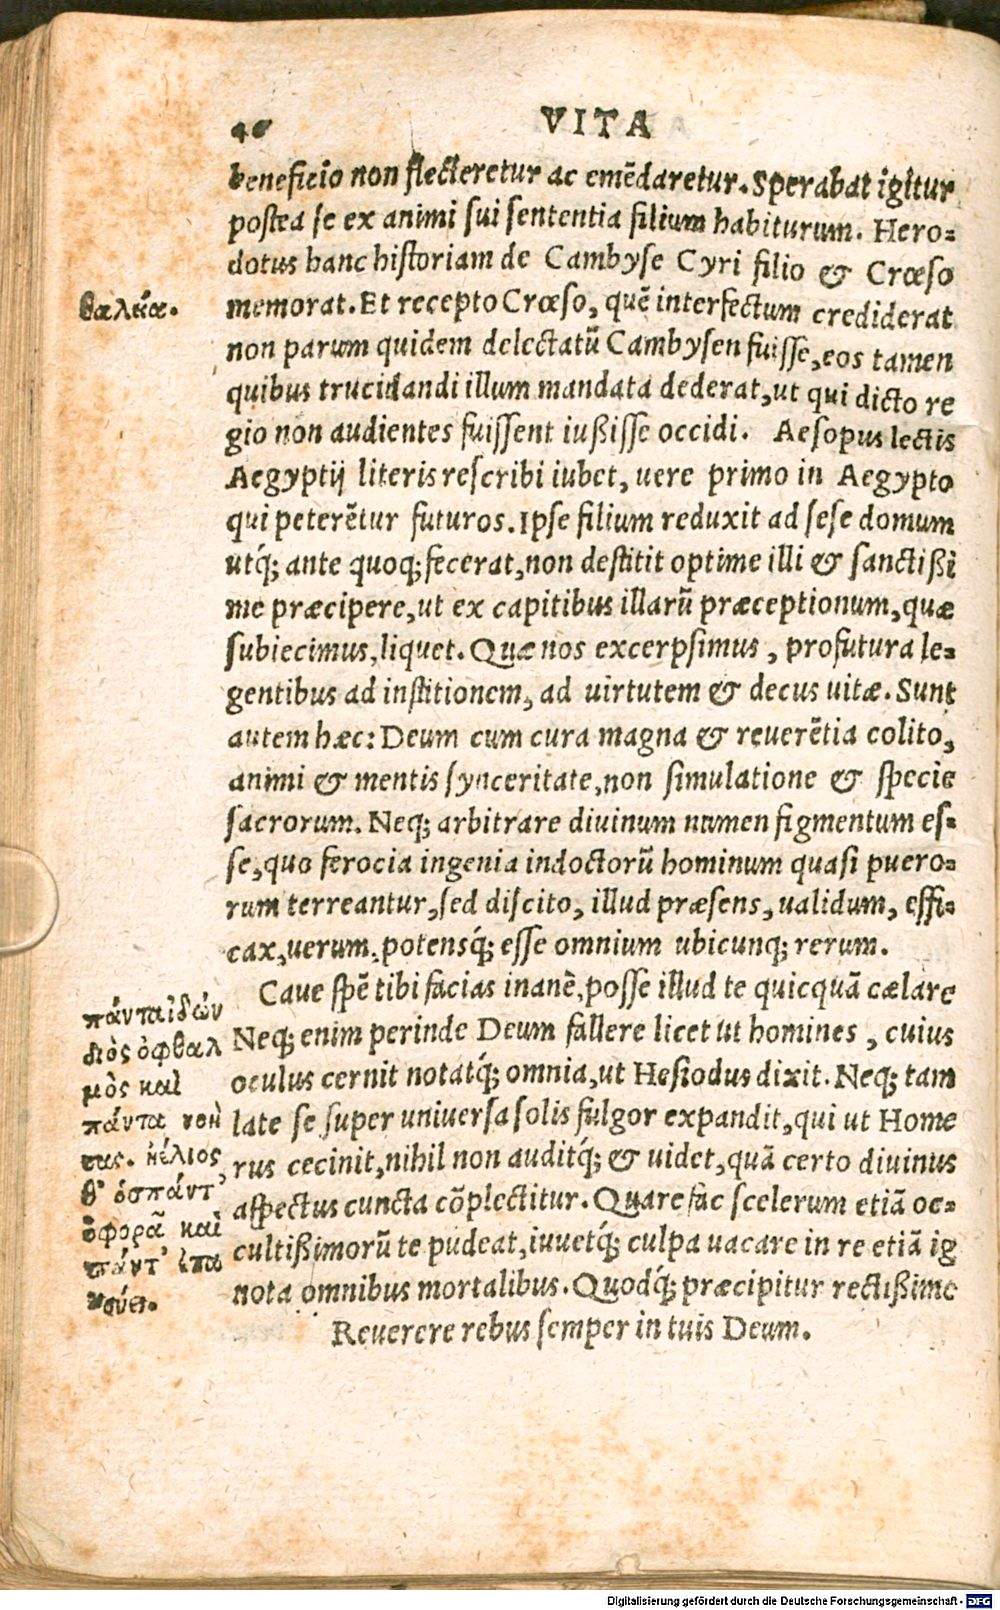 46 VITA
beneficio non flecteretur ac emēdaretur. Sperabat igitur
postea se ex animi sui sententia filium habiturum. Hero-
dotus hanc historiam de Cambyse Cyri filio & Crœso
θαλεία.
memorat. Et recepto Crœso, quē interfectum crediderat
non parum quidem delectatū Cambysen fuisse, eos tamen
quibus trucidandi illum mandata dederat, ut qui dicto re
gio non audientes fuissent iußisse occidi. Aesopus lectis
Aegyptij literis rescribi iubet, uere primo in Aegypto
qui peterētur futuros. Ipse filium reduxit ad sese domum
utq́; ante quoq; fecerat, non destitit optime illi & sanctißi
me præcipere, ut ex capitibus illarū præceptionum, quæ
subiecimus, liquet. Quæ nos excerpsimus, profutura le-
gentibus ad institionem, ad uirtutem & decus uitæ. Sunt
autem hæc: Deum cum cura magna & reuerētia colito,
animi & mentis synceritate, non simulatione & specie
sacrorum. Neq; arbitrare diuinum numen figmentum es-
se, quo ferocia ingenia indoctorū hominum quasi puero-
rum terreantur, sed discito, illud præsens, ualidum, effi-
cax, uerum, potensq́; esse omnium ubicunq; rerum.
Caue spē tibi facias inanē, posse illud te quicquā cælare
Neq; enim perinde Deum fallere licet ut homines, cuius
oculus cernit notatq́; omnia, ut Hesiodus dixit. Neq; tam
late se super uniuersa solis fulgor expandit, qui ut Home
rus cecinit, nihil non auditq́; & uidet, quā certo diuinus
aspectus cuncta cōplectitur. Quare fac scelerum etiā oc-
cultißimorū te pudeat, iuuetq́; culpa uacare in re etiā ig
nota omnibus mortalibus. Quodq́; præcipitur rectißime
Reuerere rebus semper in tuis Deum.
πάντα ἰδών
διὸς ὀφθαλ
μὸς καὶ
πάντα νοή
σας. ἠέλιος
θ' ὃς πάντ'
ἐφορᾷ καὶ
πάντ' ἐπα
κούει.
Digitalisierung gefördert durch die Deutsche Forschungsgemeinschaft - DFG